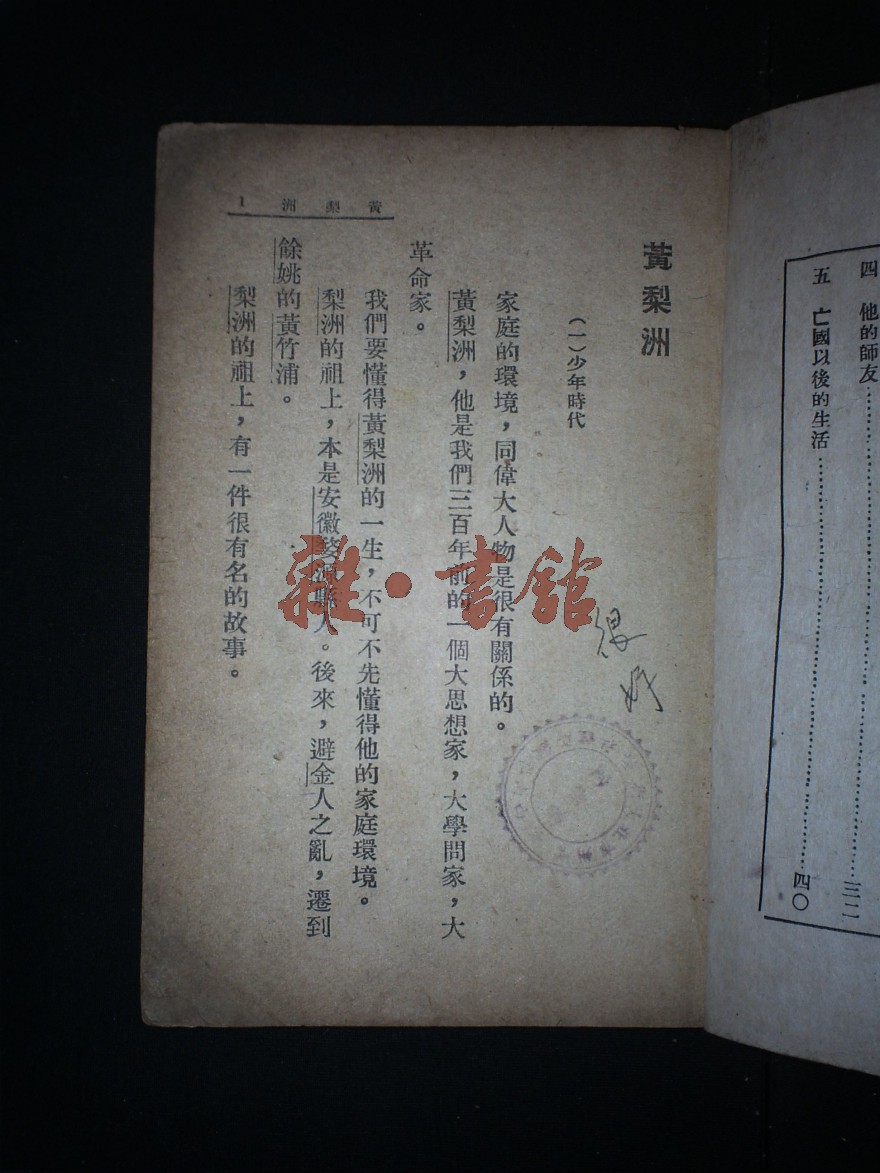 四　他的師友……三二
五　亡國以後的生活……四〇
黃梨洲　1
黃梨洲
（一）少年時代
家庭的環境，同偉大人物是很有關係的。
黃梨洲，他是我們三百年前的一個大思想家，大學問家，大
革命家。
我們要懂得黃梨洲的一生，不可不先懂得他的家庭環境。
梨洲的祖上，本是安徽婺源縣人。後來，避金人之亂，遷到
餘姚的黃竹浦。
梨洲的祖上，有一件很有名的故事。
雜·書館